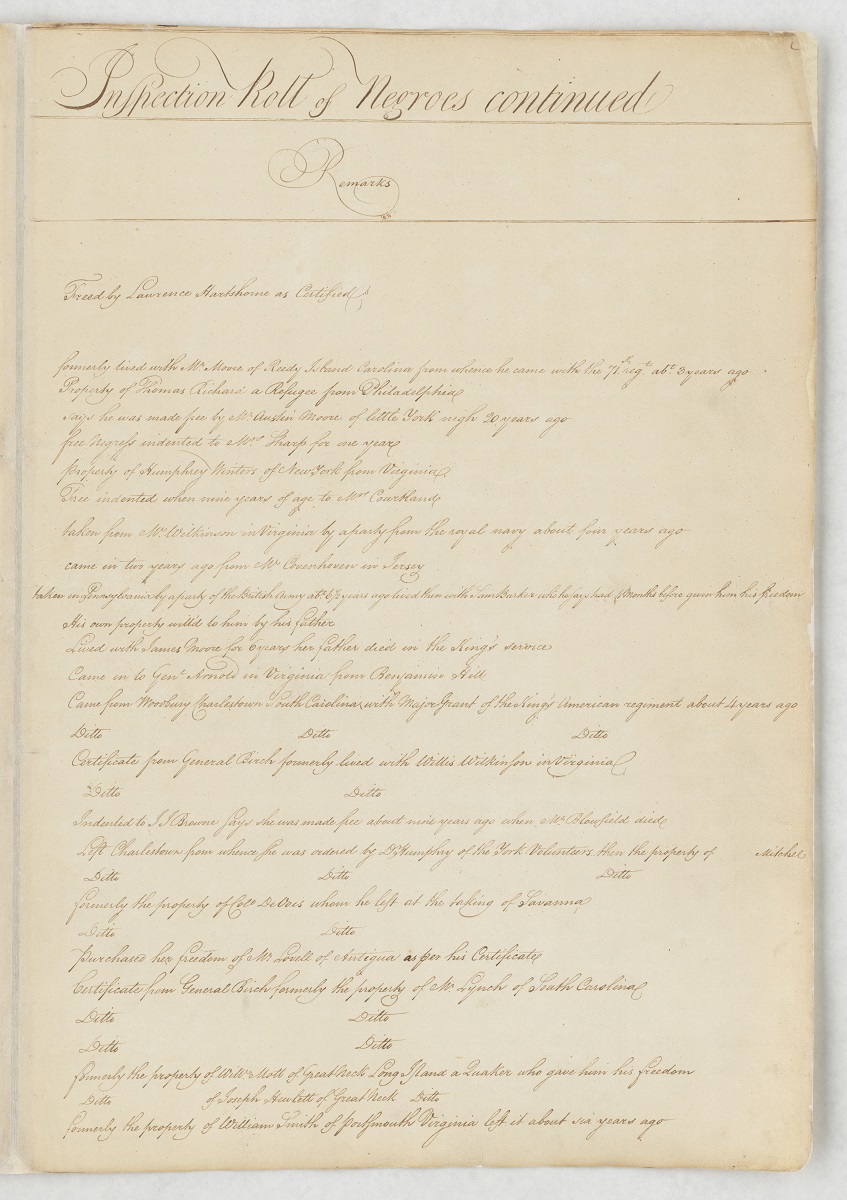 Inspection Roll of Negroes continued
Remarks
Freed by Lawrence Hartshorne as Certified
formerly lived with Mr. Moore of Reedy Island Carolina from whence he came with the 71st regt abt 3 years ago
Property of Thomas Richard a Refugee from Philadelphia
says he was made free by Mr. Austin Moore of little York nigh 20 years ago
free Negress indented to Mrs. Sharp for one year
property of Humphrey Winters of New York from Virginia
Free indented when nine years of age to Mrs Courtland
taken from Mr. Wilkinson in Virginia by a party from the royal navy about four years ago
came in two years ago from Mr Covenhoven in Jersey
taken in Pennsylvania by a party of the British Army abt 6½ years ago lived then with Sam Barker who he says had months before given him his freedom
His own property will'd to him by his father
Lived with James Moore for 6 years her father died in the King's service
Came in to Genl Arnold in Virginia from Benjamin Hill
Came from Woodbury Charlestown South Carolina with Major Grant of the King's American regiment about 4 years ago
Ditto Ditto Ditto
Certificate from General Birch formerly lived with Willis Wilkinson in Virginia
Ditto Ditto
Indented to J J Browne Says she was made free about nine years ago when Mr. Blowfield died
Left Charlestown from whence she was ordered by D Humphry of the York Volunteers then the property of Mitchel
Ditto Ditto Ditto
formerly the property of Colo DeVeis whom he left at the taking of Savanna
Ditto Ditto
purchased her freedom of Mr Lovell of Antigua as per his Certificate
Certificate from General Birch formerly the property of Mr. Lynch of South Carolina
Ditto Ditto
Ditto Ditto
formerly the property of Willm Mott of Great Neck Long Island a Quaker who gave him his freedom
Ditto of Joseph Hewlett of Great Neck Ditto
formerly the property of William Smith of Portsmouth Virginia left it about six years ago